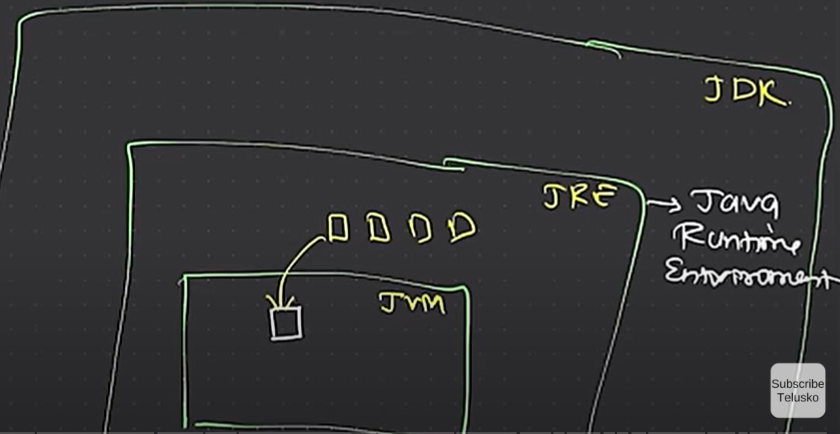 JDK.
JRE → Java
Runtime
Environment
JVM
Subscribe
Telusko